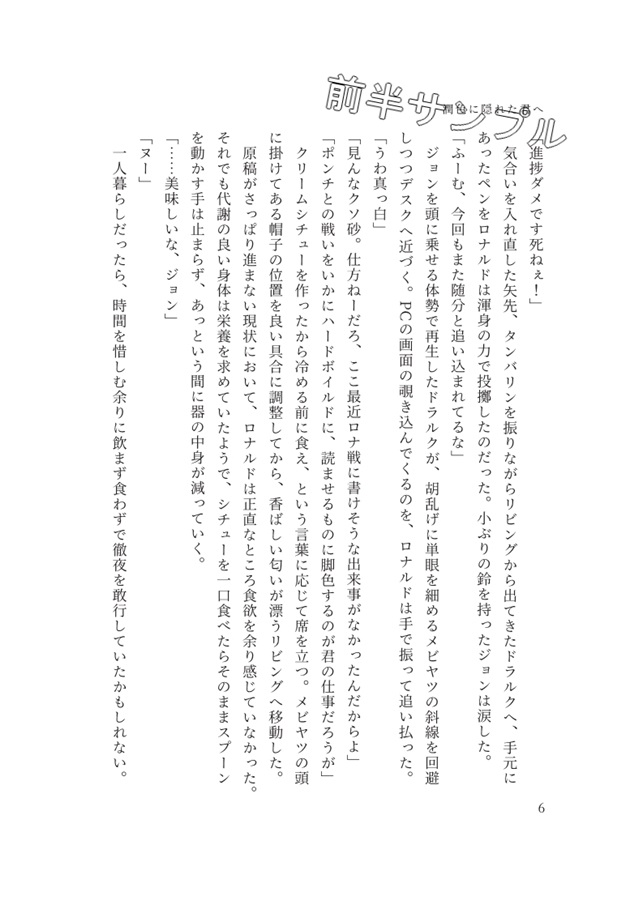 前半サンプル
に隠れた君へ
「進捗ダメです死ねぇ！」
　気合いを入れ直した矢先、タンバリンを振りながらリビングから出てきたドラルクへ、手元に
あったペンをロナルドは渾身の力で投擲したのだった。小ぶりの鈴を持ったジョンは涙した。
「ふーむ、今回もまた随分と追い込まれてるな」
　ジョンを頭に乗せる体勢で再生したドラルクが、胡乱げに単眼を細めるメビヤツの斜線を回避
しつつデスクへ近づく。PCの画面の覗き込んでくるのを、ロナルドは手で振って追い払った。
「うわ真っ白」
「見んなクソ砂。仕方ねーだろ、ここ最近ロナ戦に書けそうな出来事がなかったんだからよ」
「ポンチとの戦いをいかにハードボイルドに、読ませるものに脚色するのが君の仕事だろうが」
　クリームシチューを作ったから冷める前に食え、という言葉に応じて席を立つ。メビヤツの頭
に掛けてある帽子の位置を良い具合に調整してから、香ばしい匂いが漂うリビングへ移動した。
　原稿がさっぱり進まない現状において、ロナルドは正直なところ食欲を余り感じていなかった。
それでも代謝の良い身体は栄養を求めていたようで、シチューを一口食べたらそのままスプーン
を動かす手は止まらず、あっという間に器の中身が減っていく。
「……美味しいな、ジョン」
「ヌー」
　一人暮らしだったら、時間を惜しむ余りに飲まず食わずで徹夜を敢行していたかもしれない。
6